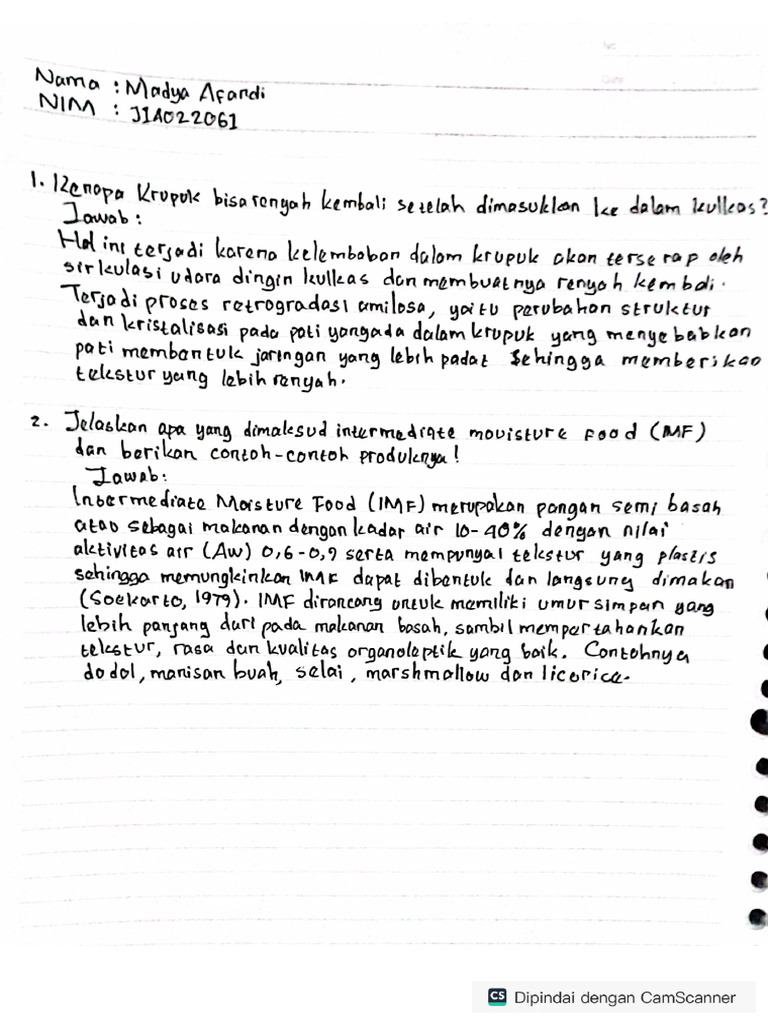 Nama : Madya Afandi
NIM : J1A022061
1. Kenapa Krupuk bisa renyah kembali setelah dimasukkan ke dalam kulkas?
Jawab :
Hal ini terjadi karena kelembaban dalam krupuk akan terserap oleh
sirkulasi udara dingin kulkas dan membuatnya renyah kembali.
Terjadi proses retrogradasi amilosa, yaitu perubahan struktur
dan kristalisasi pada pati yang ada dalam krupuk yang menyebabkan
pati membentuk jaringan yang lebih padat sehingga memberikan
tekstur yang lebih renyah.
2. Jelaskan apa yang dimaksud intermediate mouisture Food (IMF)
dan berikan contoh-contoh produknya!
Jawab:
Intermediate Moisture Food (IMF) merupakan pangan semi basah
atau sebagai makanan dengan kadar air 10-40% dengan nilai
aktivitas air (Aw) 0,6-0,9 serta mempunyai tekstur yang plastis
sehingga memungkinkan IMF dapat dibentuk dan langsung dimakan
(Soekarto, 1979). IMF dirancang untuk memiliki umur simpan yang
lebih panjang dari pada makanan basah, sambil mempertahankan
tekstur, rasa dan kualitas organoleptik yang baik. Contohnya
dodol, manisan buah, selai, marshmallow dan licorice.
CS Dipindai dengan CamScanner